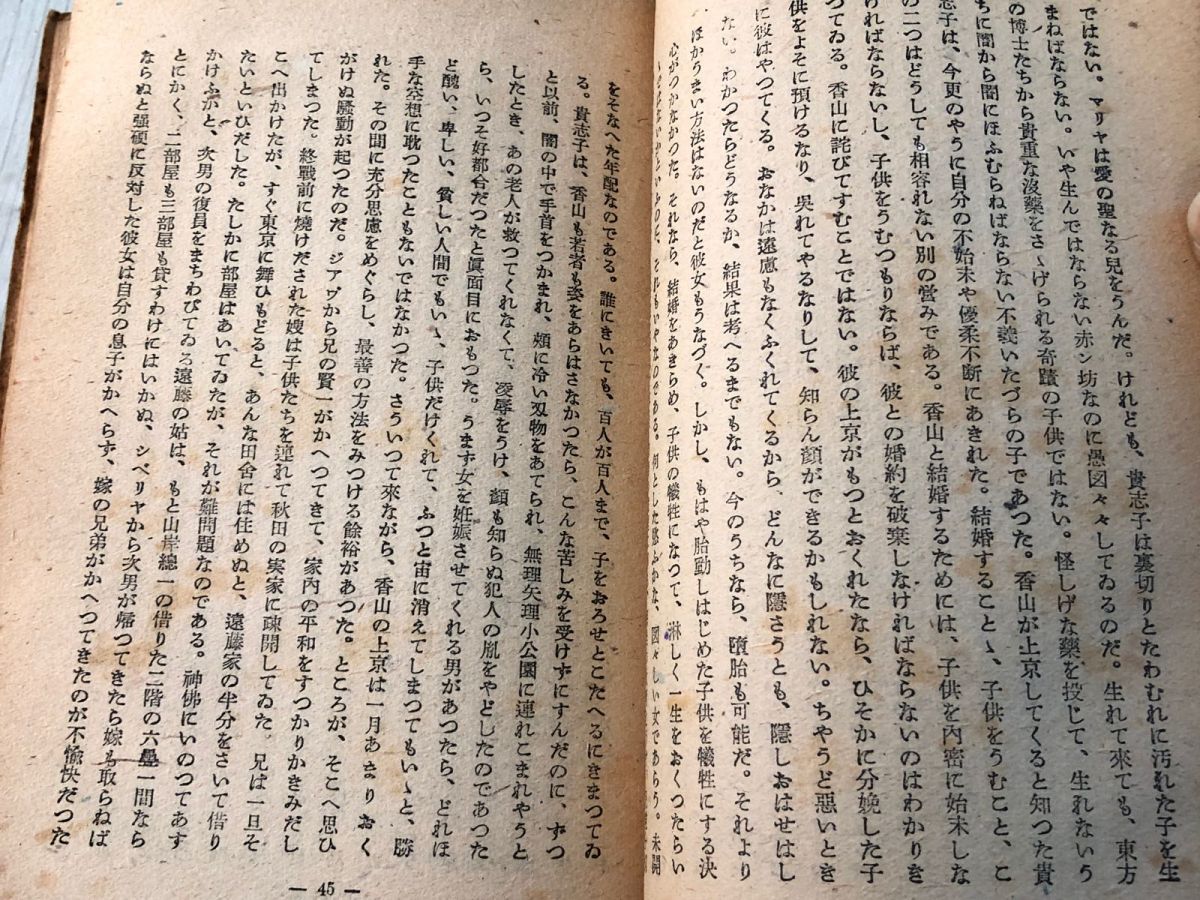 ではない。マリヤは愛の聖なる兒をうんだ。けれども、貴志子は裏切りとたわむれに汚れた子を生
まねばならない。いや生んではならない赤ン坊なのに愚図々々してゐるのだ。生れて來ても、東方
の博士たちから貴重な沒藥をさゝげられる奇蹟の子供ではない。怪しげな藥を投じて、生れないう
ちに闇から闇にほふむらねばならない不義いたづらの子であつた。香山が上京してくると知つた貴
志子は、今更のやうに自分の不始末や優柔不断にあきれた。結婚すること、子供をうむこと、こ
の二つはどうしても相容れない別の営みである。香山と結婚するためには、子供を内密に始末しな
ければならないし、子供をうむつもりならば、彼との婚約を破棄しなければならないのはわかりき
つてゐる。香山に詫びてすむことではない。彼の上京がもつとおくれたなら、ひそかに分娩した子
供をよそに預けるなり、吳れてやるなりして、知らん顔ができるかもしれない。ちやうど悪いとき
に彼はやつてくる。おなかは遠慮もなくふくれてくるから、どんなに隱さうとも、隱しおはせはし
ない。わかつたらどうなるか、結果は考へるまでもない。今のうちなら、墮胎も可能だ。それより
ほかうまい方法はないのだと彼女もうなづく。しかし、もはや胎動しはじめた子供を犠牲にする決
心がつかなかつた。それなら、結婚をあきらめ、子供の犠牲になつて、淋しく一生をおくつたらい
それもいやなのである。何とした慾ふかな、図々しい女であらう。未開
をそなへた年配なのである。誰にきいても、百人が百人まで、子をおろせとこたへるにきまつてゐ
る。貴志子は、香山も若者も姿をあらはさなかつたら、こんな苦しみを受けずにすんだのに、ずつ
と以前、闇の中で手首をつかまれ、頰に冷い刃物をあてられ、無理矢理小公園に連れこまれやうと
したとき、あの老人が救つてくれなくて、凌辱をうけ、顔も知らぬ犯人の胤をやどしたのであつた
ら、いつそ好都合だつたと眞面目におもつた。うまず女を妊娠させてくれる男があつたら、どれほ
ど醜い、卑しい、貧しい人間でもいゝ、子供だけくれて、ふつと宙に消えてしまつてもいゝと、勝
手な空想に耽つたこともないではなかつた。さういつて來ながら、香山の上京は一月あまりおく
れた。その間に充分思慮をめぐらし、最善の方法をみつける餘裕があつた。ところが、そこへ思ひ
がけぬ騷動が起つたのだ。ジアヴから兄の賢一がかへつてきて、家内の平和をすつかりかきみだし
てしまつた。終戰前に燒けだされた嫂は子供たちを連れて秋田の実家に疎開してゐた。兄は一旦そ
こへ出かけたが、すぐ東京に舞ひもどると、あんな田舍には住めぬと、遠藤家の半分をさいて借り
たいといひだした。たしかに部屋はあいてゐたが、それが難問題なのである。神佛にいのつてあす
かけふかと、次男の復員をまちわびてゐる遠藤の姑は、もと山岸總一の借りた二階の六疊一間なら
とにかく、二部屋も三部屋も貸すわけにはいかぬ、シベリヤから次男が帰つてきたら嫁も取らねば
ならぬと强硬に反対した彼女は自分の息子がかへらず、嫁の兄弟がかへつてきたのが不愉快だつた
— 45 —